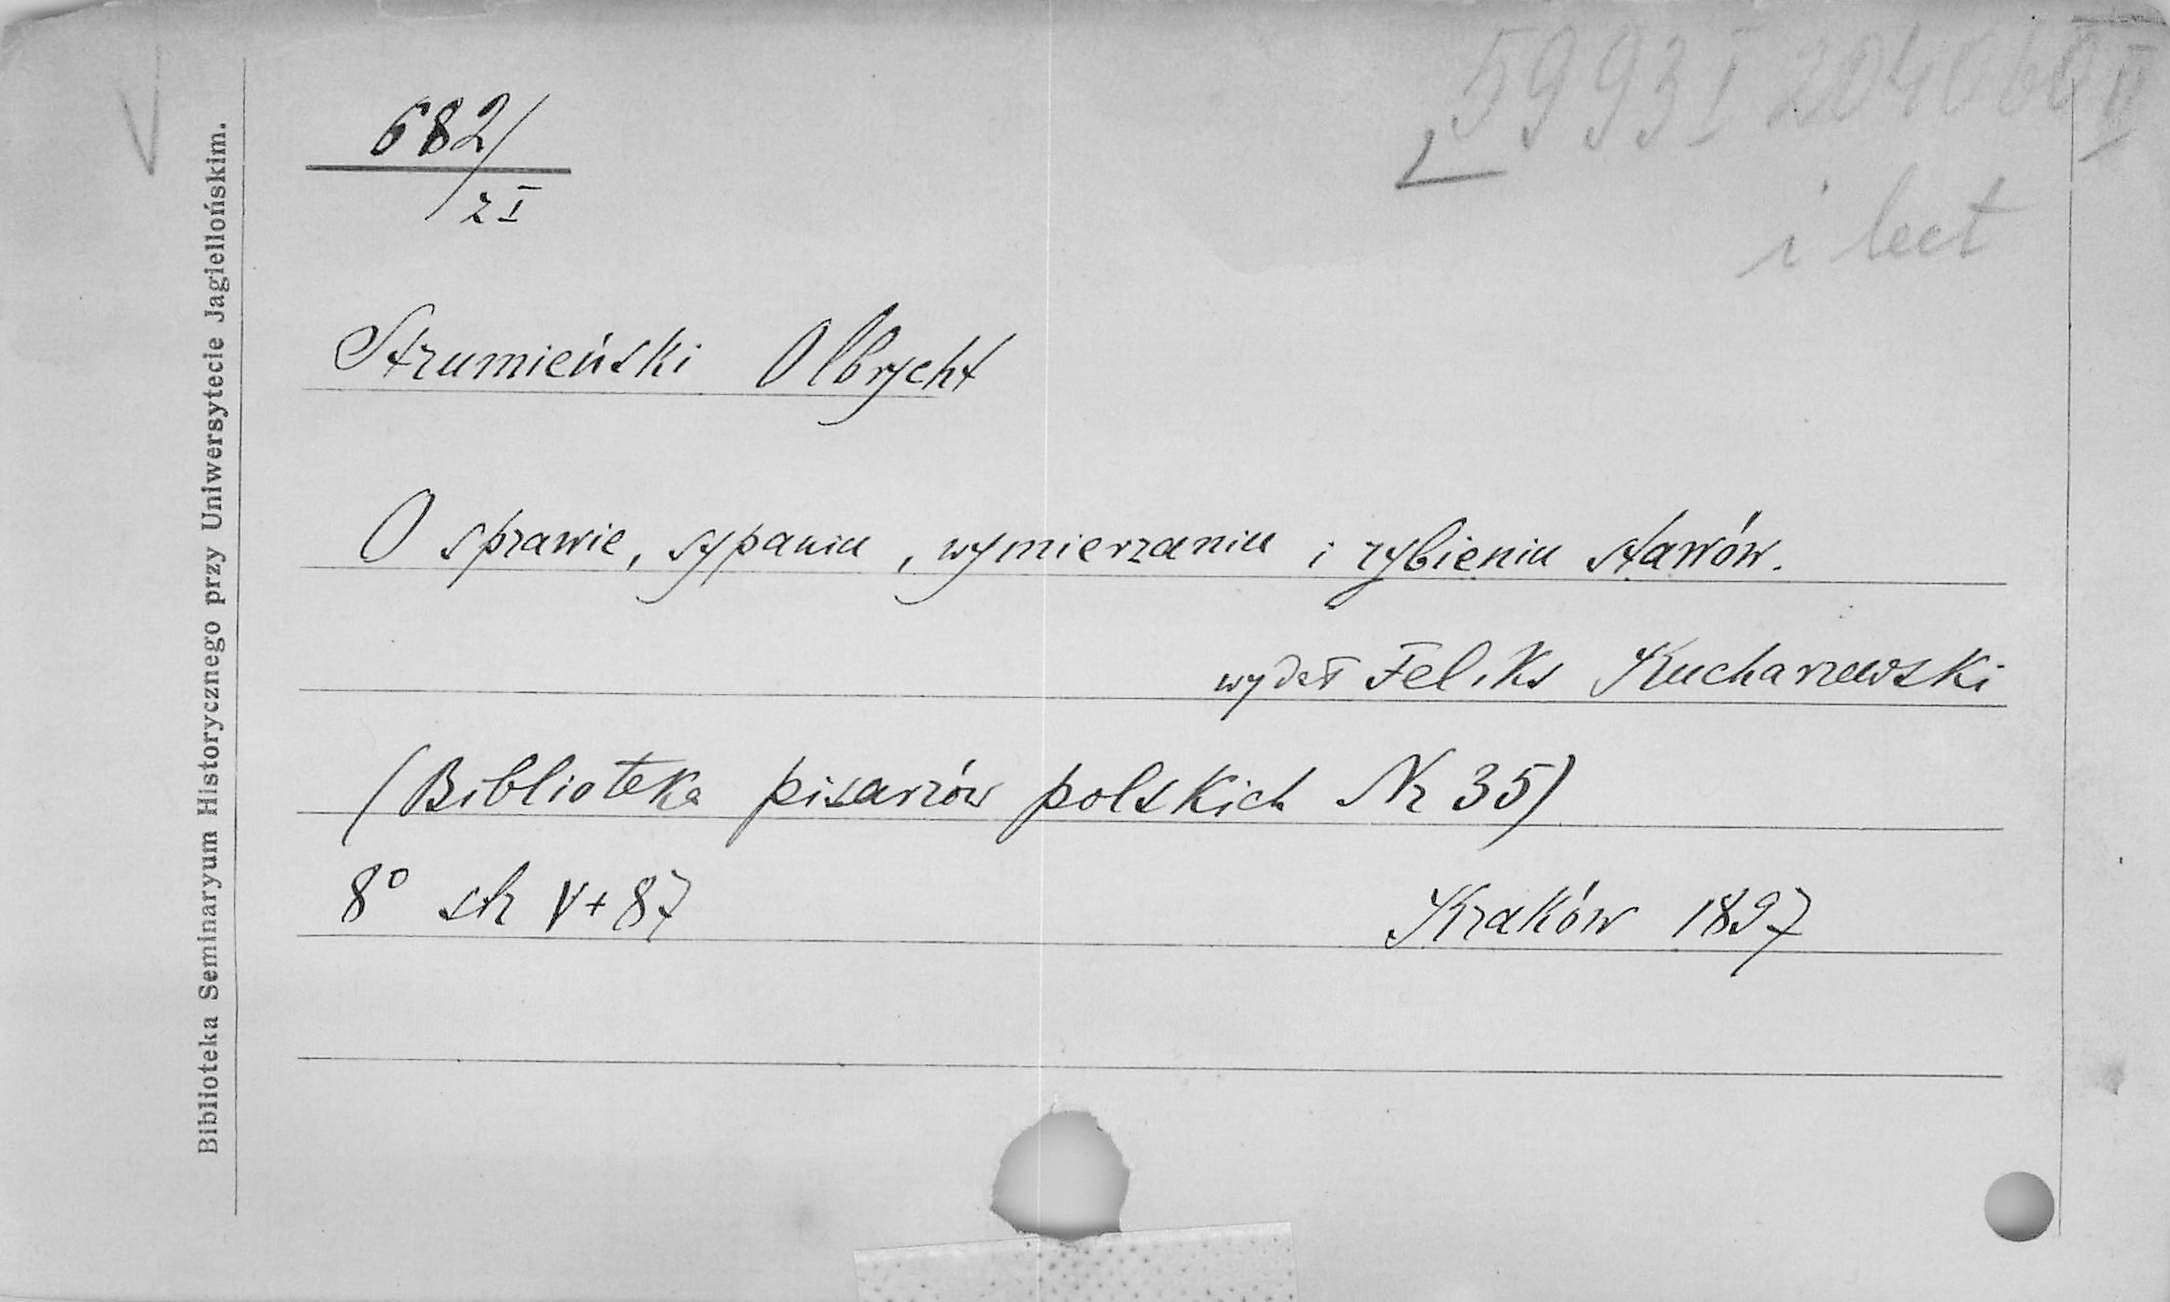 682/
z I
5993 I 204060 II
i lect
Strumieński Olbrycht
O sprawie, sypaniu, wymierzaniu i rybieniu stawów.
wydał Feliks Kucharzewski
(Biblioteka pisarzów polskich Nr 35)
8° str V + 87 Kraków 1897
Biblioteka Seminaryum Historycznego przy Uniwersytecie Jagiellońskim.